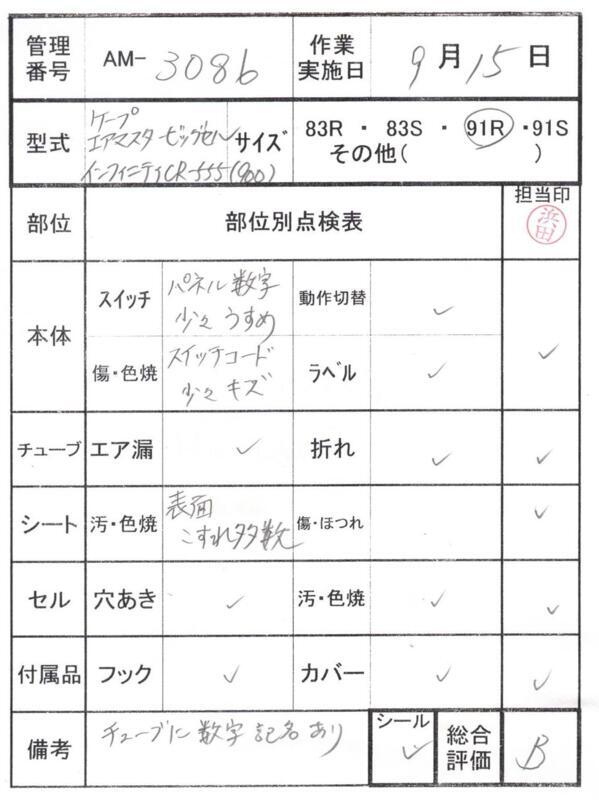 管理番号 AM-3086 作業実施日 9月15日
型式 ケープ
エアマスタービッグセル
インフィニティCR-555(900)
サイズ 83R ・ 83S ・ 91R ・91S
その他( )
部位 部位別点検表 担当印 浜田
本体 スイッチ パネル数字
少々うすめ
動作切替 ✓
傷・色焼 スイッチコード
少々キズ
ラベル ✓ ✓
チューブ エア漏 ✓ 折れ ✓ ✓
シート 汚・色焼 表面
こすれ多数
傷・ほつれ ✓
セル 穴あき ✓ 汚・色焼 ✓ ✓
付属品 フック ✓ カバー ✓ ✓
備考 チューブに数字記名あり シール ✓ 総合評価 B